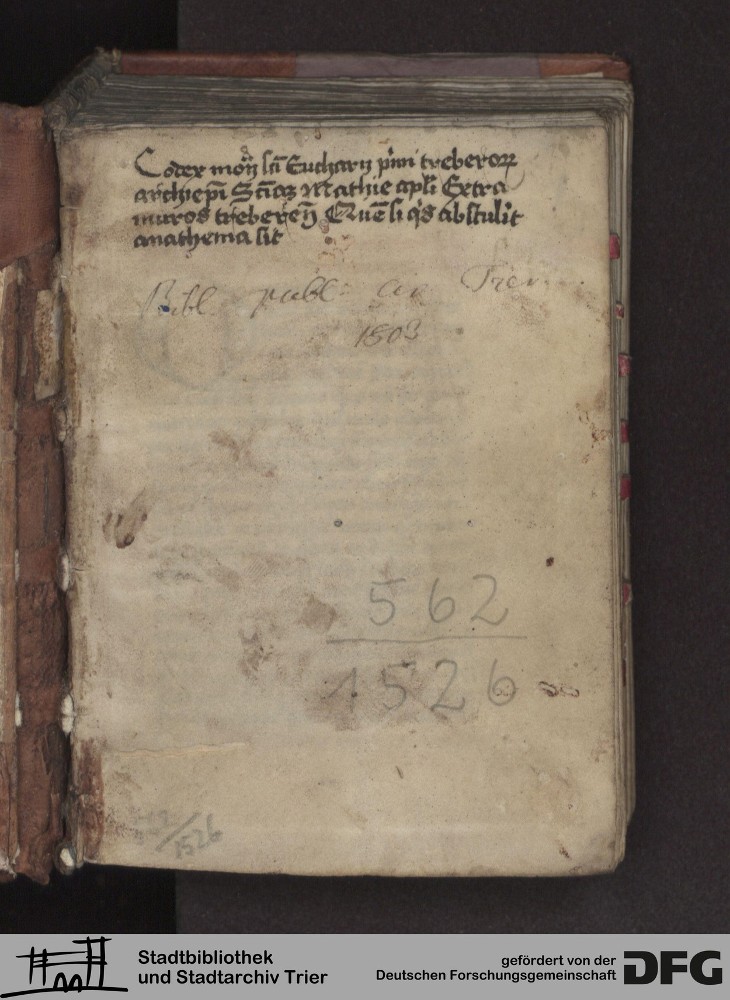 Codex moñ sci Eucharij pmi treberoꝝ
archiepi Sctiqꝫ Mathie apli Extra
muros trebereñ Quē si qͥs abstulit
anathema sit
Bibl publ: civ Trev
1803
562
1526
562/1526
Stadtbibliothek
und Stadtarchiv Trier
gefördert von der
Deutschen Forschungsgemeinschaft
DFG